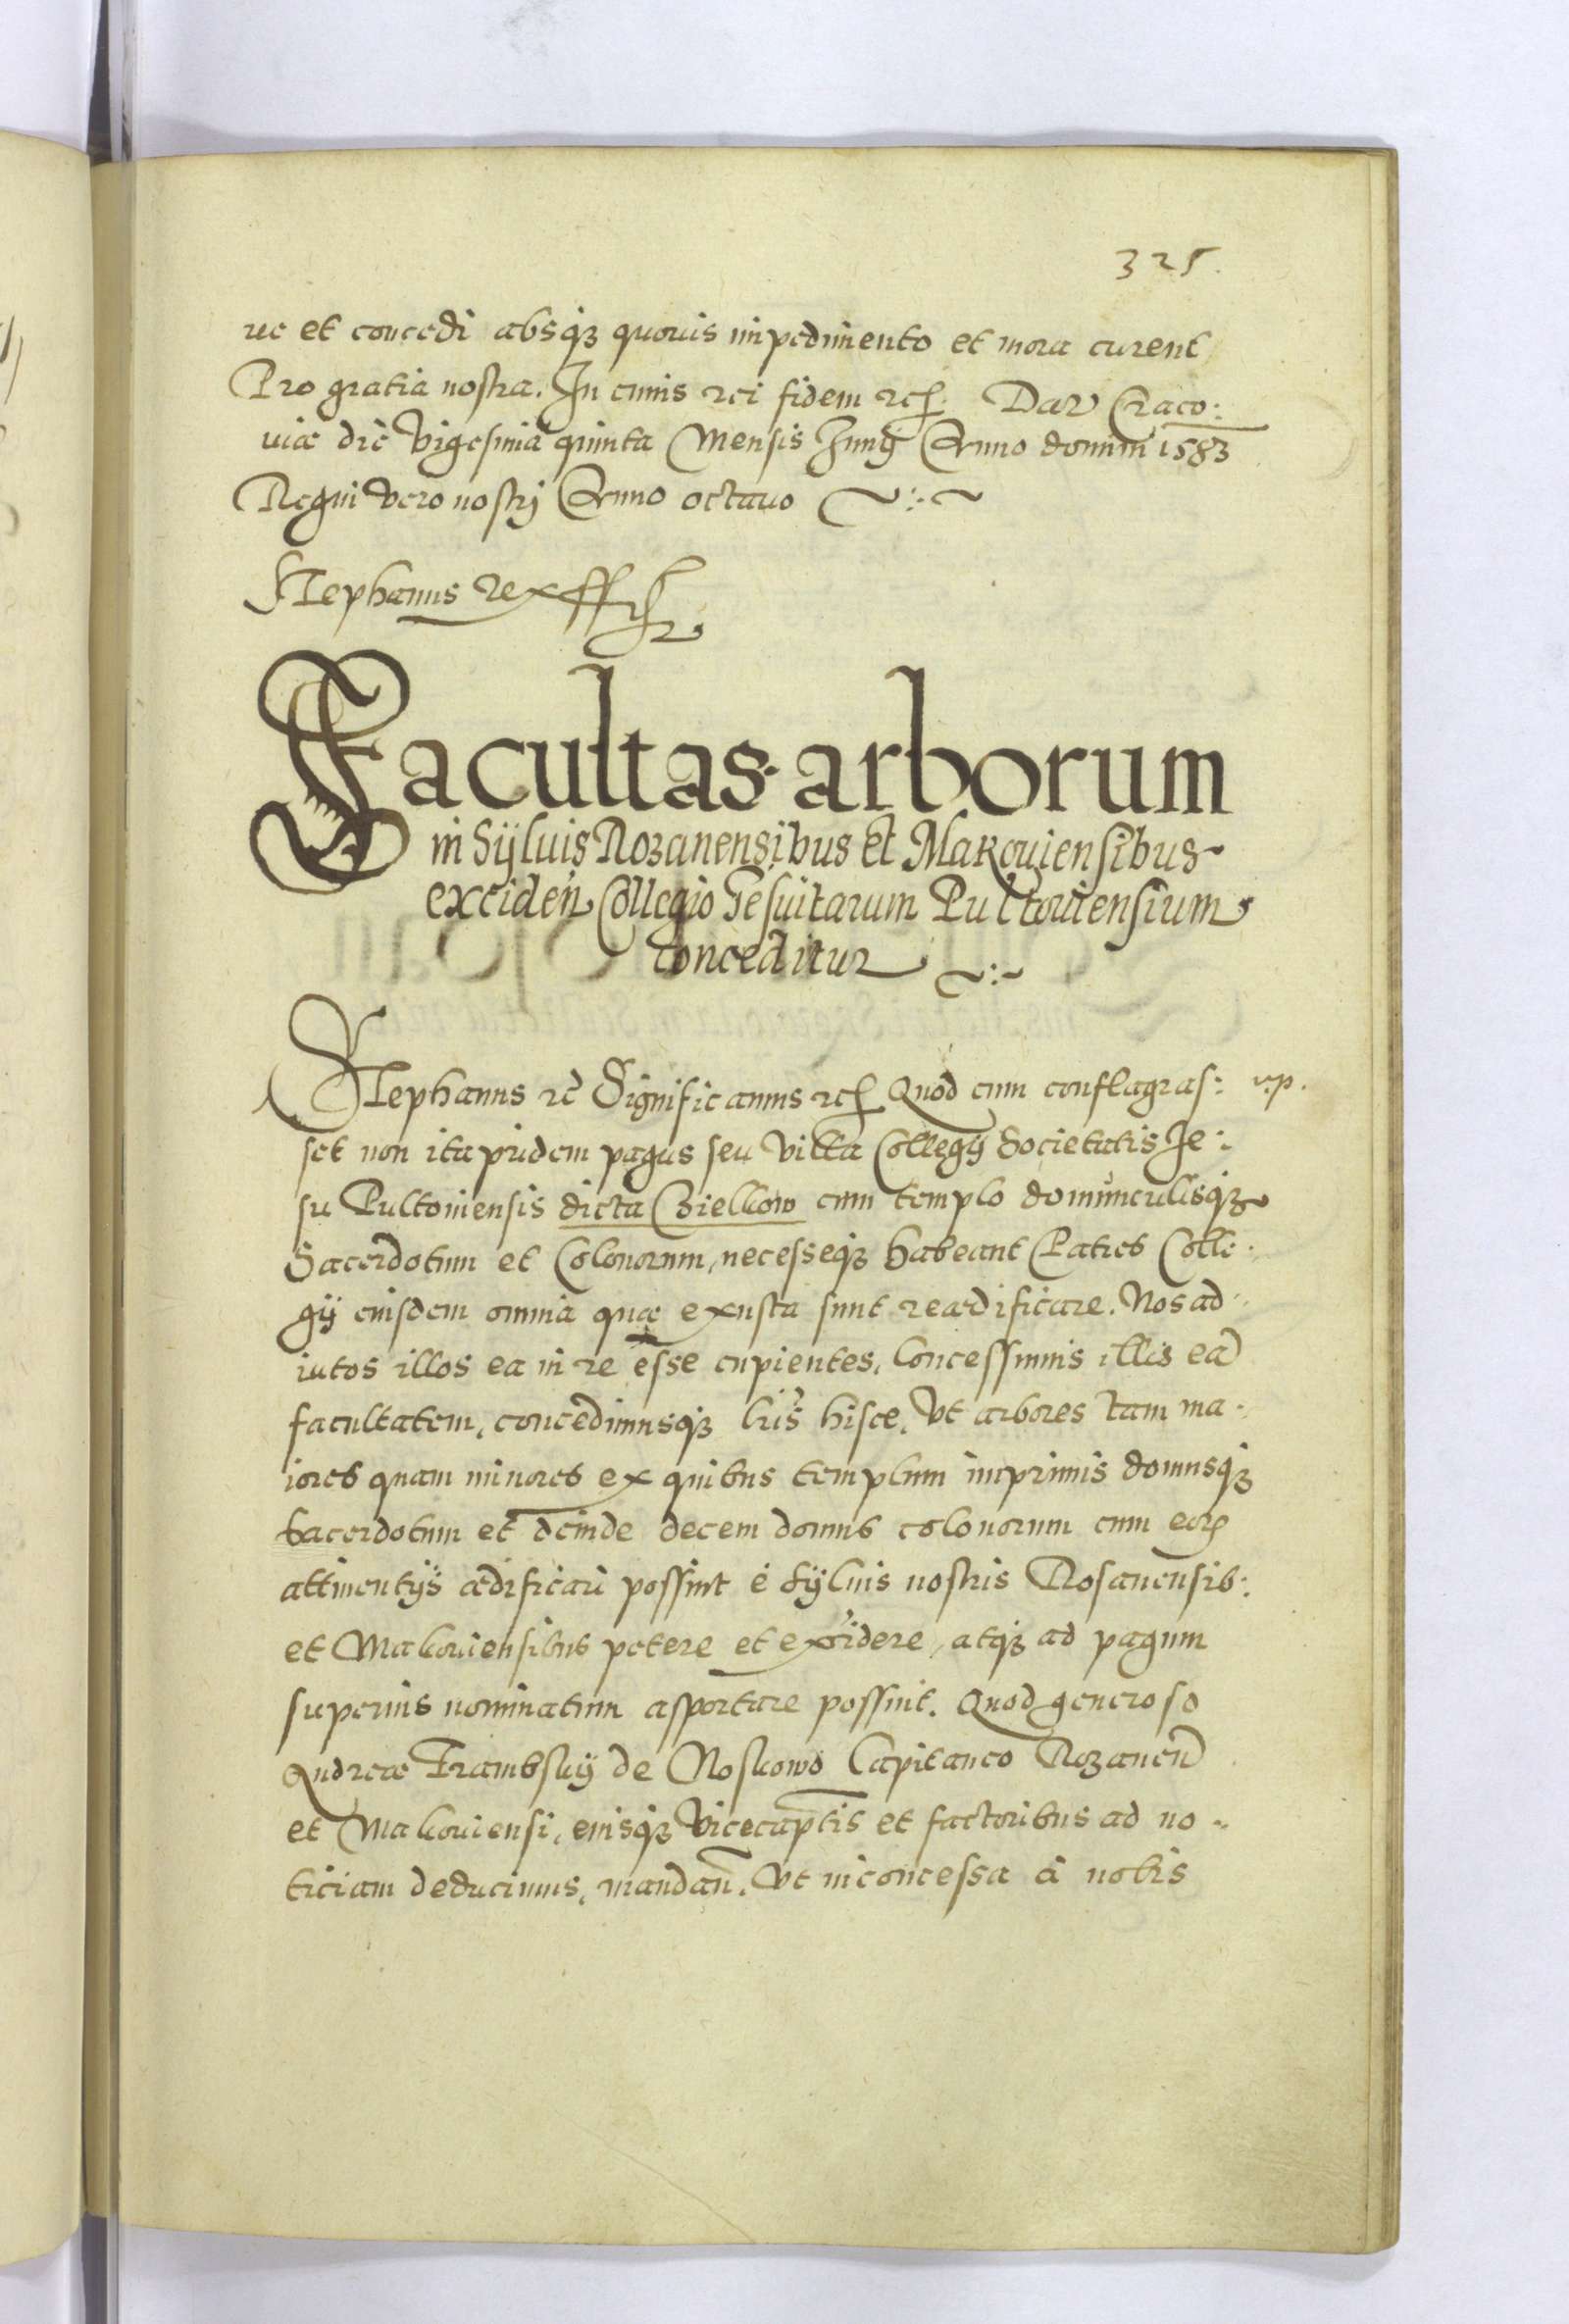 325.
re et concedi absq3 quouis impedimento et mora curent
Pro gratia nostra. In cuius rei fidem etc. Dat Craco:
uiæ die Vigesima quinta Mensis Junij Anno domini 1583
Regni vero nostrj Anno octauo
Stephanus Rex
Facultas arborum
in Sÿluis Rozanensibus et Makouiensibus
exciden Collegio Jesuitarum Pultouiensium
conceditur
Stephanus etc Significamus etc Quod cum conflagras: v.p.
set non ita pridem pagus seu villa Collegÿ Societatis Je:
su Pultouiensis dicta Bielkow cum templo domunculisq3
Sacerdotum et Colonorum, necesseq3 habeant Patres Colle:
gÿ eiusdem omnia quæ exusta sunt reædificare. Nos ad:
iutos illos ea in re esse cupientes, Concessimus illis eā
facultatem, concedimusq3 lr̃is hisce, Vt arbores tam ma:
iores quam minores ex quibus templum imprimis domusq3
sacerdotum et deinde decem domus colonorum cum eorū
attinentÿs ædificari possint è sÿluis nostris Rosanensib:
et Makouiensibus petere et excidere, atq3 ad pagum
superius nominatum asportare possint. Quod generoso
Andreæ Frambskÿ de Noskowo Capitaneo Rozanen̄
et Makouiensi, eiusq3 Vicecap̄tis et factoribus ad no:
ticiam deducimus, mandan̄. Vt in concessa à nobis